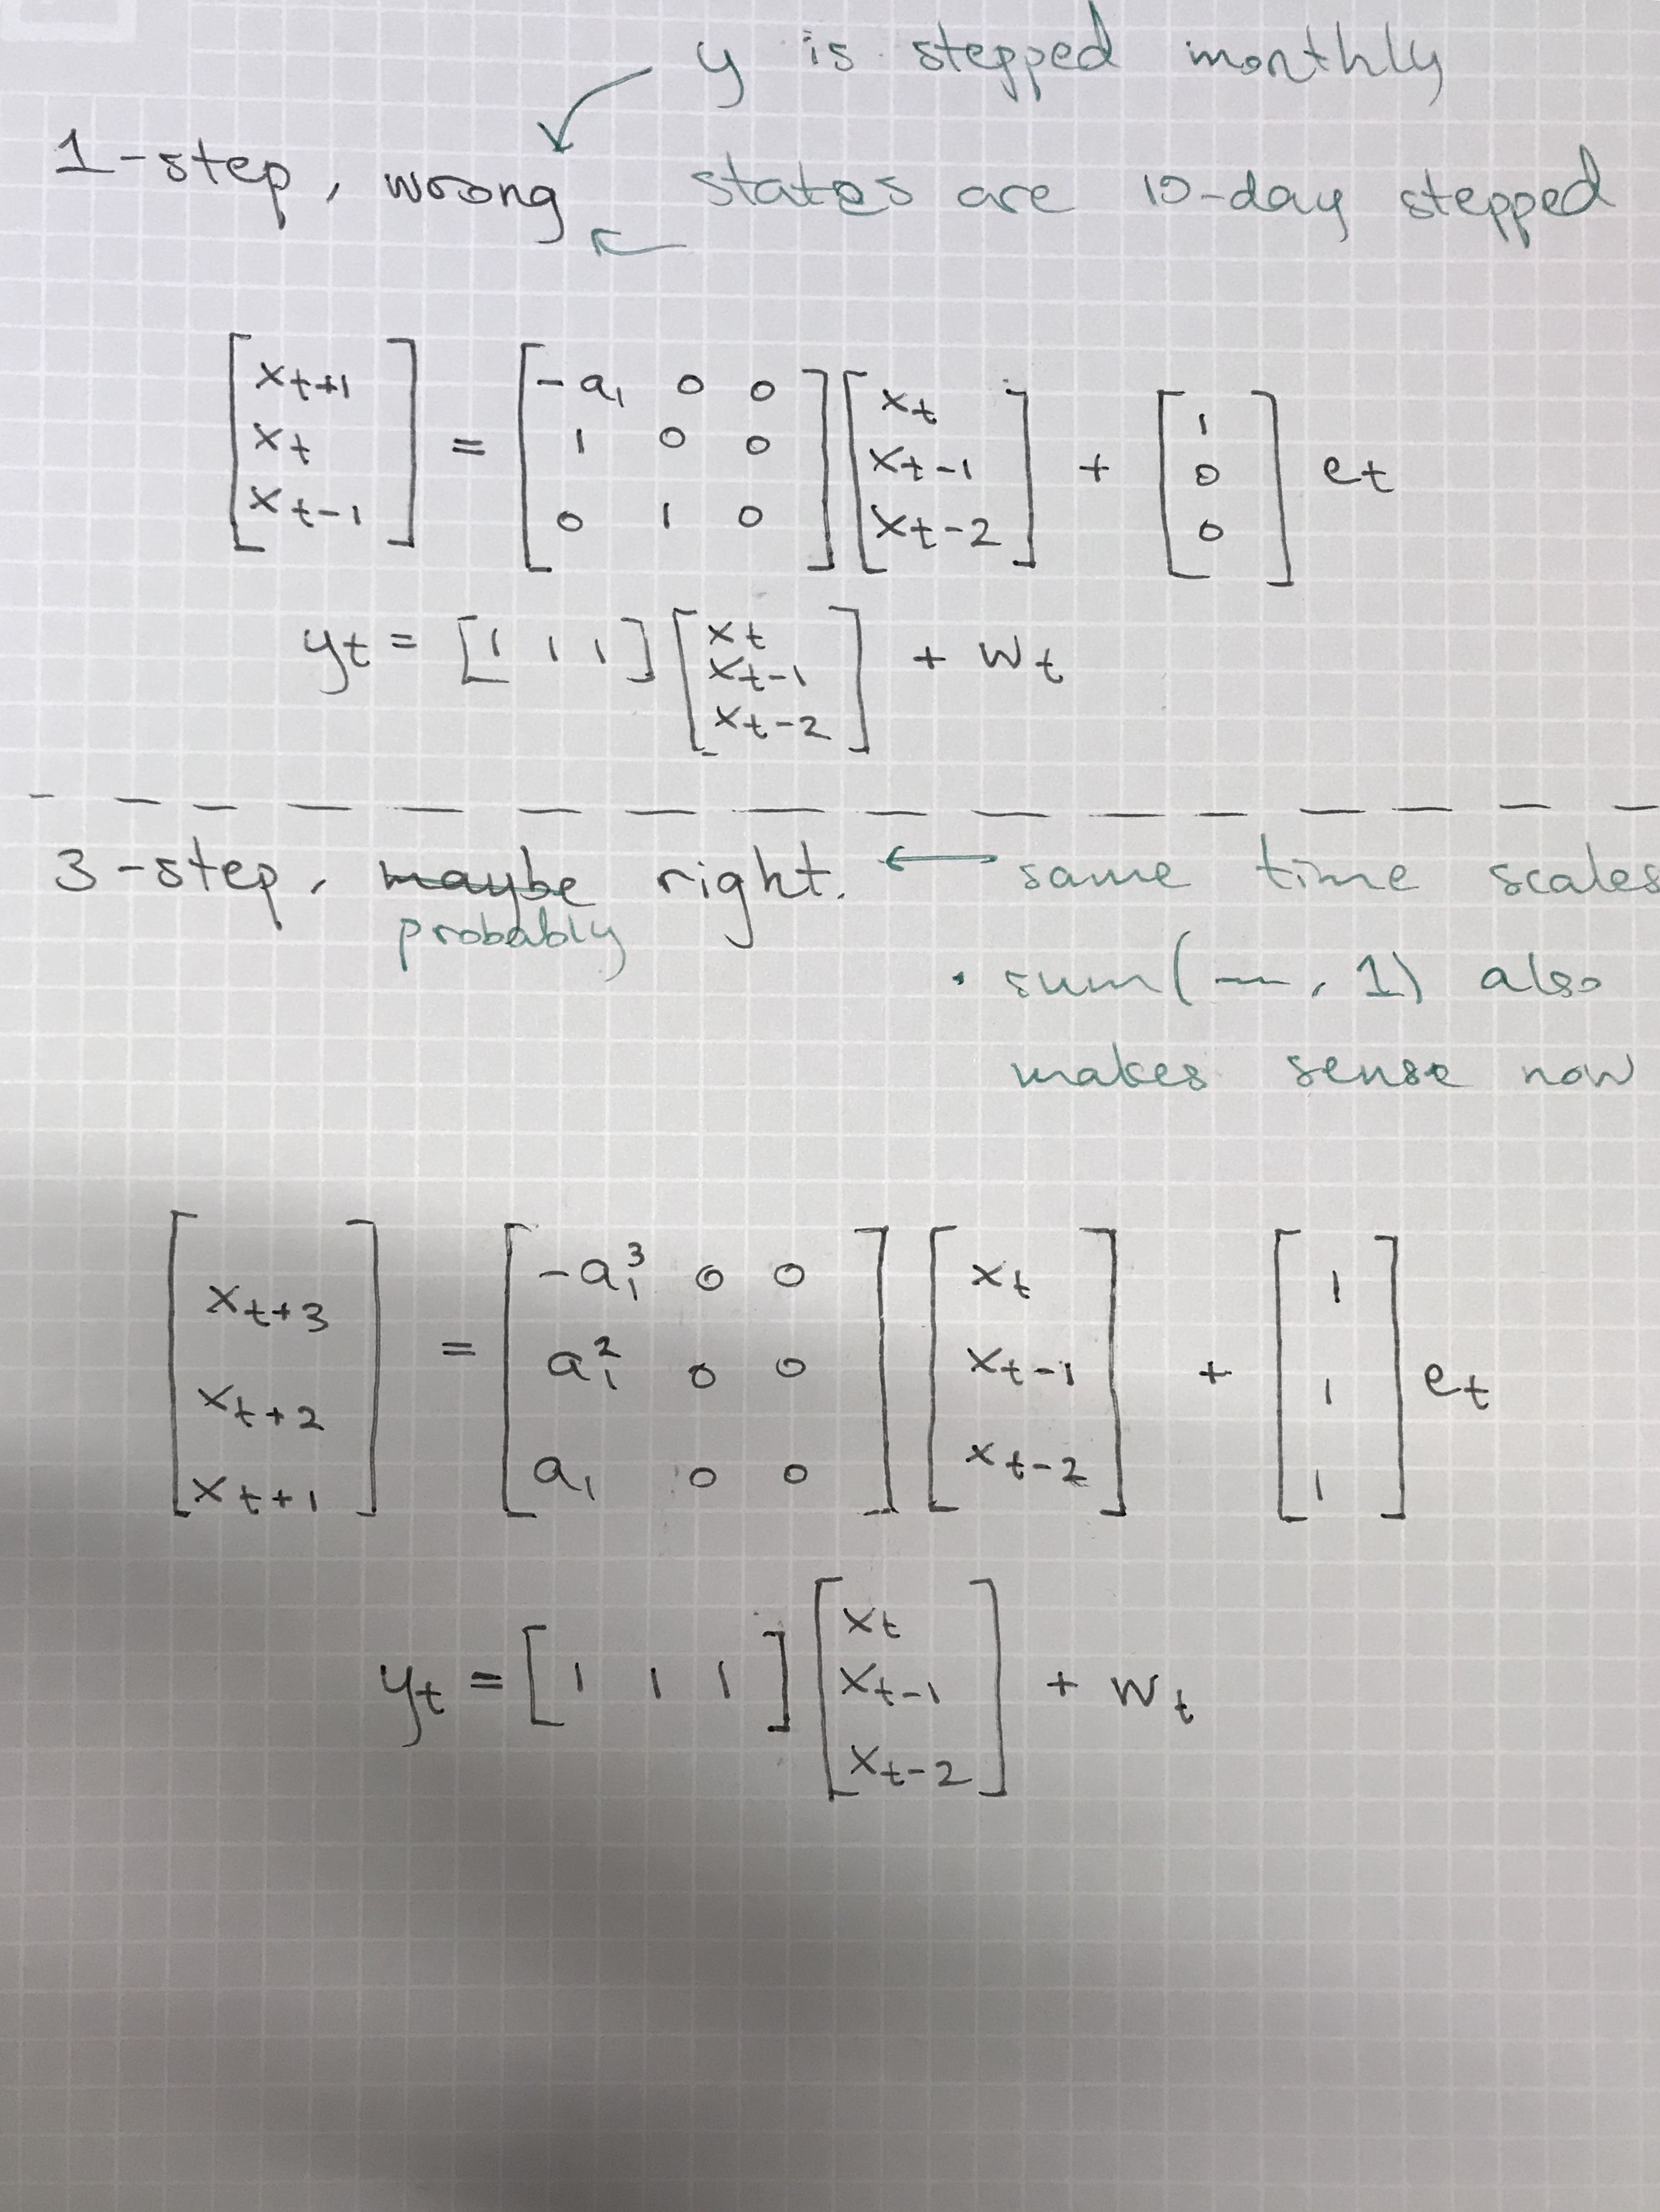 y is stepped monthly
1-step, wrong
states are 10-day stepped
[x_{t+1} x_t x_{t-1}] = [-a_1 0 0; 1 0 0; 0 1 0] [x_t x_{t-1} x_{t-2}] + [1 0 0] e_t
y_t = [1 1 1] [x_t x_{t-1} x_{t-2}] + w_t
3-step, maybe right. ← same time scales
probably
· sum(—, 1) also
makes sense now
[x_{t+3} x_{t+2} x_{t+1}] = [-a_1^3 0 0; a_1^2 0 0; a_1 0 0] [x_t x_{t-1} x_{t-2}] + [1 1 1] e_t
y_t = [1 1 1] [x_t x_{t-1} x_{t-2}] + w_t